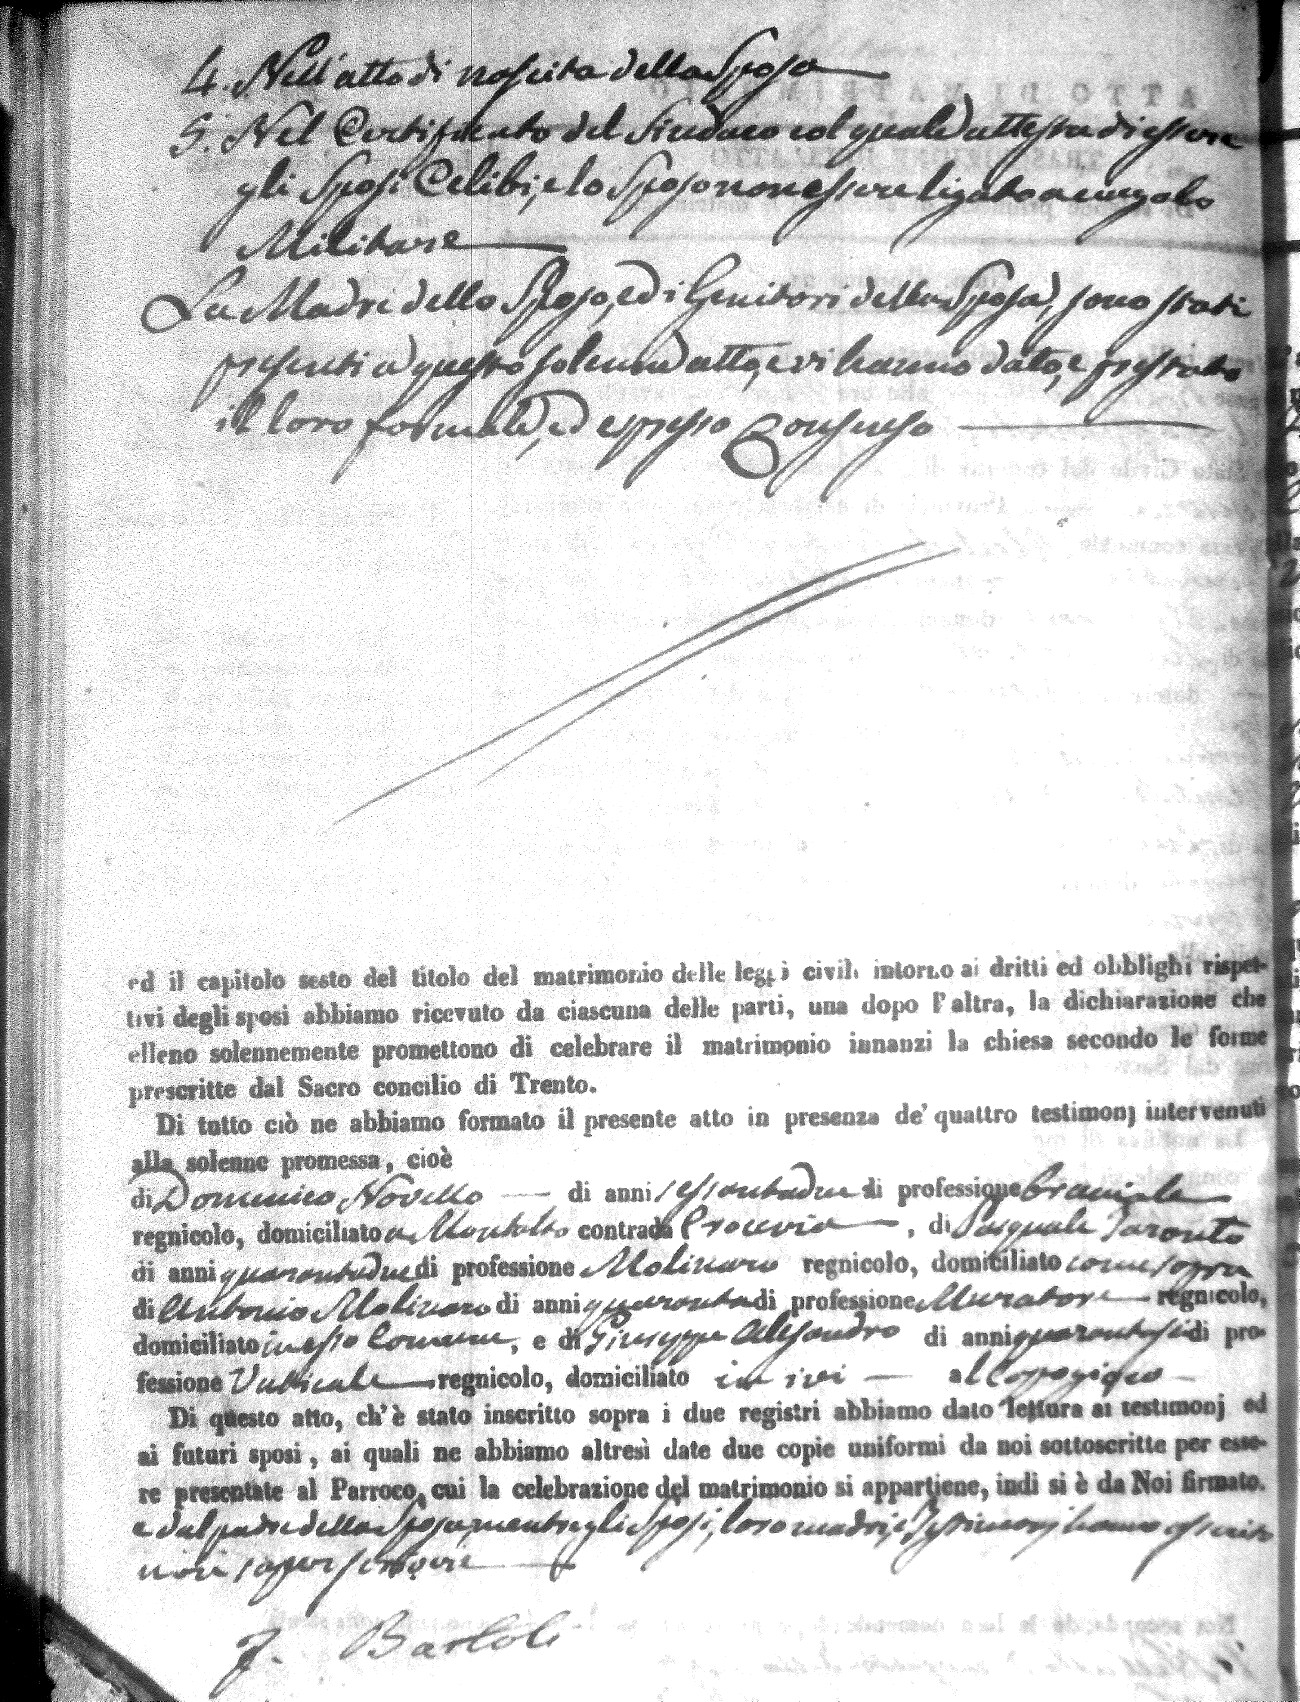 4. Nell'atto di nascita della Sposa
5. Nel Certificato del Sindaco col quale attesta di essere
gli Sposi Celibi, e lo Sposo non essere ligato a cingolo
Militare
La Madre dello Sposo, ed i Genitori della Sposa, sono stati
presenti a questo solenne atto, e vi hanno dato, e prestato
il loro formale, ed espresso Consenso
ed il capitolo sesto del titolo del matrimonio delle leggi civili intorno ai dritti ed obblighi rispet-
tivi degli sposi abbiamo ricevuto da ciascuna delle parti, una dopo l'altra, la dichiarazione che
elleno solennemente promettono di celebrare il matrimonio innanzi la chiesa secondo le forme
prescritte dal Sacro concilio di Trento.
Di tutto ciò ne abbiamo formato il presente atto in presenza de' quattro testimonj intervenuti
alla solenne promessa, cioè
di Domenico Novello — di anni sessantadue di professione braciale
regnicolo, domiciliato a Montalto contrada, di Pasquale Taranto
di anni quarantadue di professione Molinaro regnicolo, domiciliato come sopra
di Antonio Molinaro di anni quaranta di professione Muratore regnicolo,
domiciliato in esso Comune, e di Giuseppe Alesandro di anni quarantasei di pro-
fessione Vaticale regnicolo, domiciliato in ivi —
Di questo atto, ch'è stato inscritto sopra i due registri abbiamo dato lettura ai testimonj ed
ai futuri sposi, ai quali ne abbiamo altresì date due copie uniformi da noi sottoscritte per esse-
re presentate al Parroco, cui la celebrazione del matrimonio si appartiene, indi si è da Noi firmato.
e dal padre della Sposa, mentre gli Sposi, loro madri, e Testimonj hanno asserito
non saper scrivere
F. Bartoli